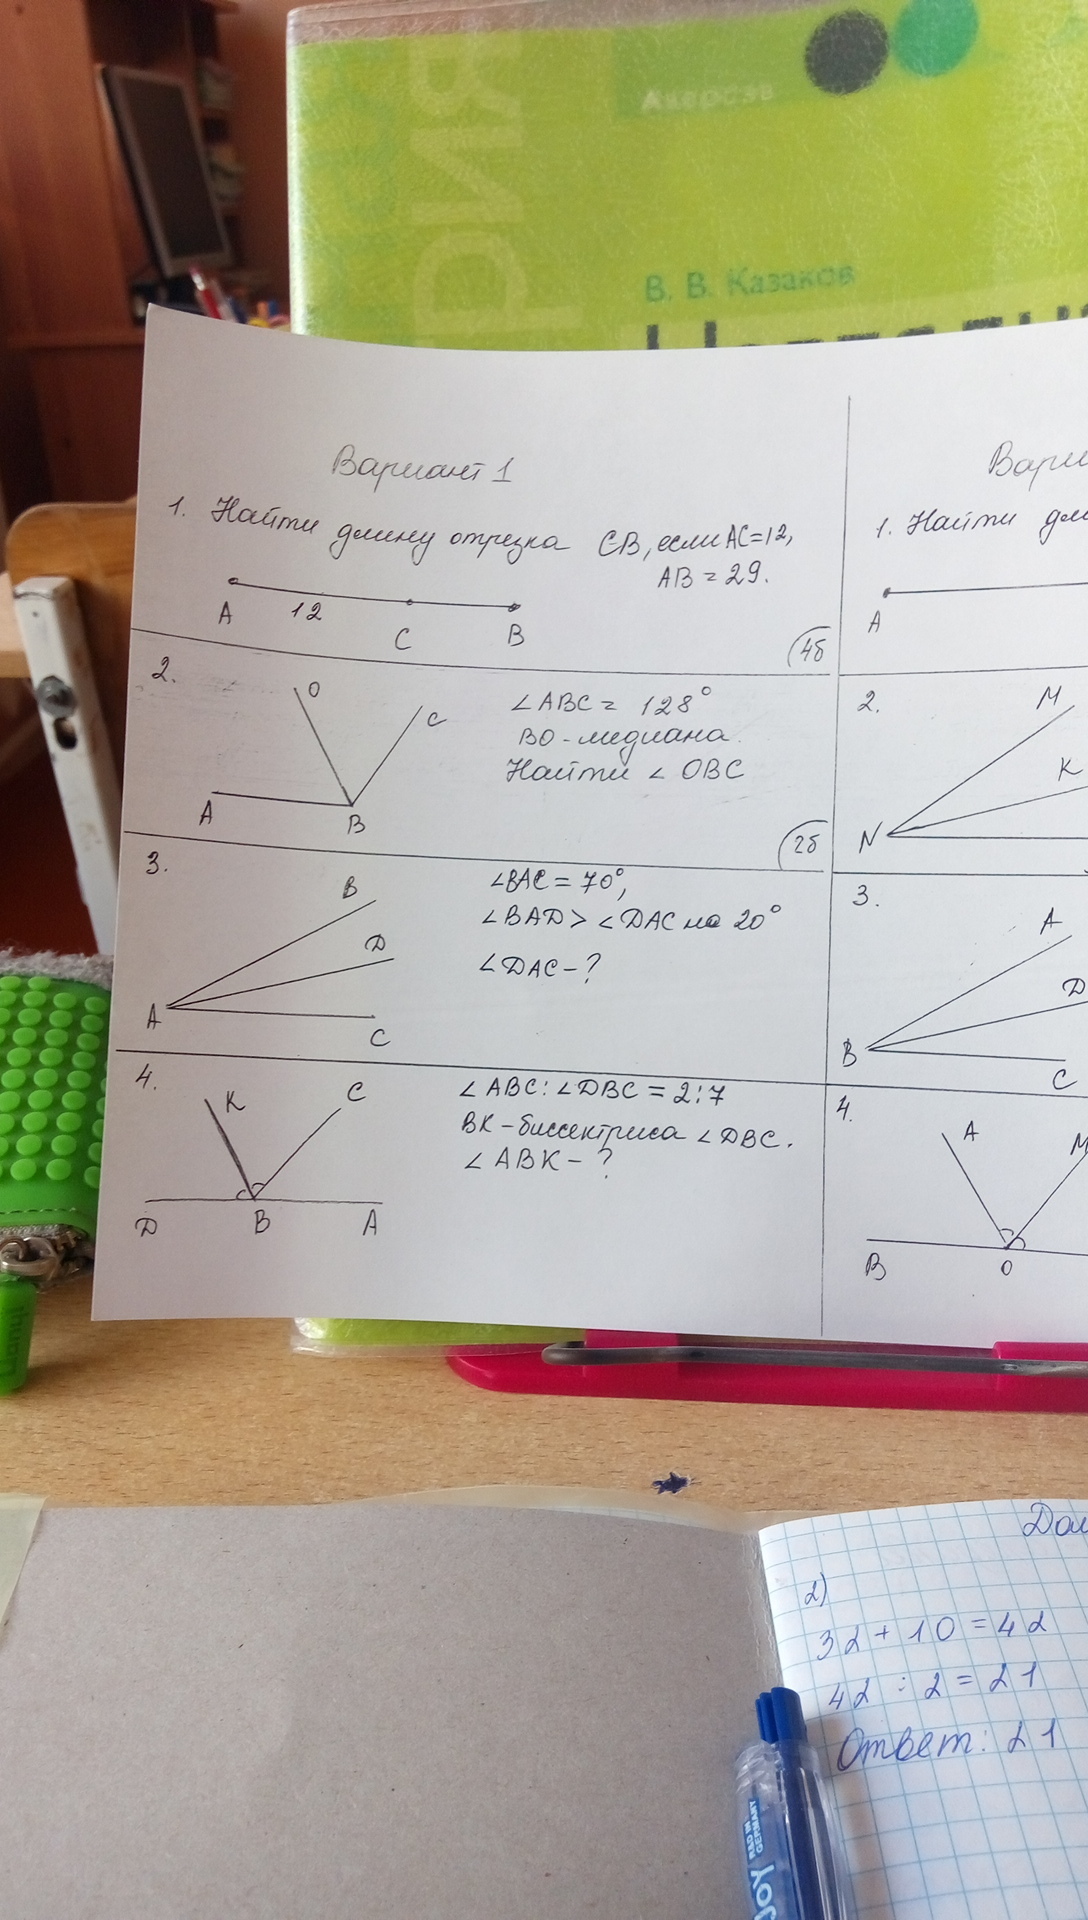 Акверсэв
В. В. Казаков
Вариант 1
1. Найти длину отрезка CB, если AC=12,
AB = 29.
A
12
C
B
4б
2.
O
C
A
B
∠ABC = 128°
BO - медиана.
Найти ∠OBC
2б
3.
B
D
A
C
∠BAC = 70°,
∠BAD > ∠DAC на 20°
∠DAC - ?
4.
K
C
D
B
A
∠ABC : ∠DBC = 2:7
BK - биссектриса ∠DBC.
∠ABK - ?
1. Найти
A
2.
M
K
N
3.
A
D
B
C
4.
A
M
B
O
2)
32 + 10 = 42
42 : 2 = 21
Ответ: 21
GERMANY
JOY